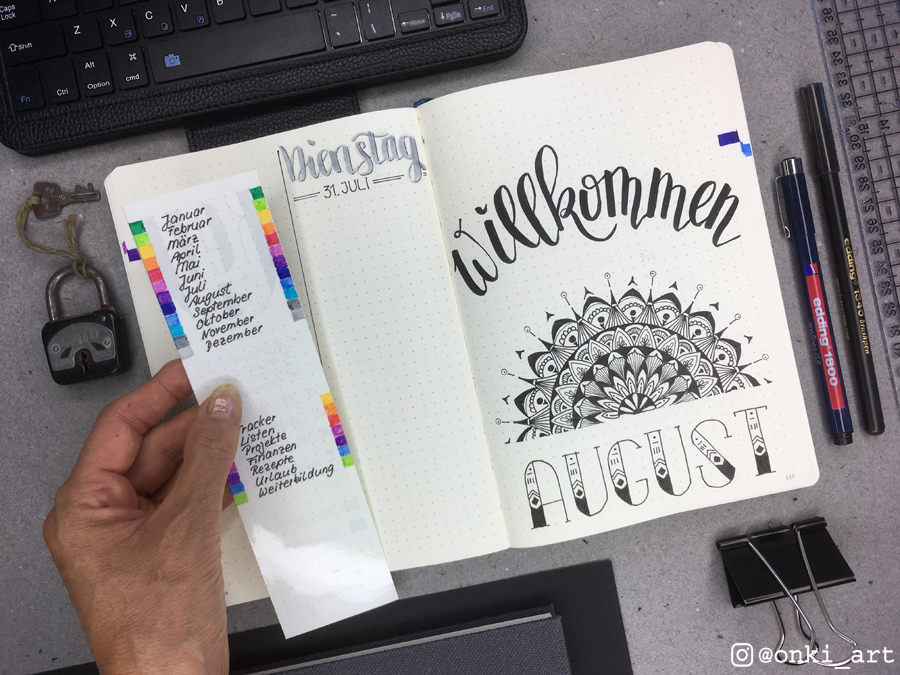 Caps
Lock
Shift
Fn
Ctrl
Alt
Option
⌘
cmd
Z
X
C
V
B
N
M
Home
PgDn
End
Dienstag
31. JULI
Januar
Februar
märz
April
Mai
Juni
Juli
August
September
Oktober
November
Dezember
Tracker
Listen
Projekte
Finanzen
Rezepte
Urlaub
Weiterbildung
Willkommen
AUGUST
edding 1800
edding 1340
@onki_art